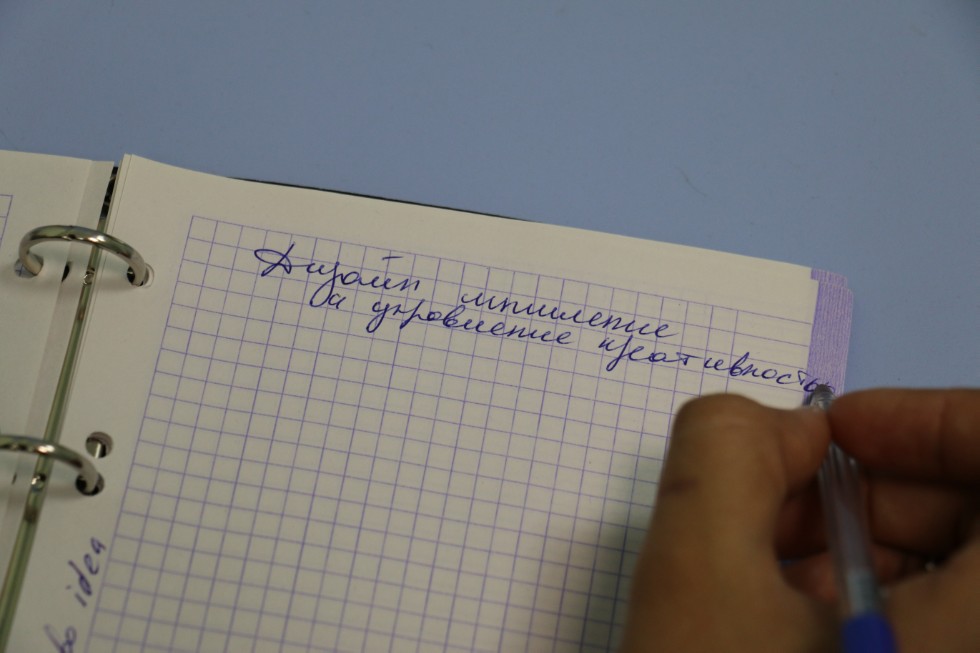 Дизайн мышление
и управление креативностью
idea